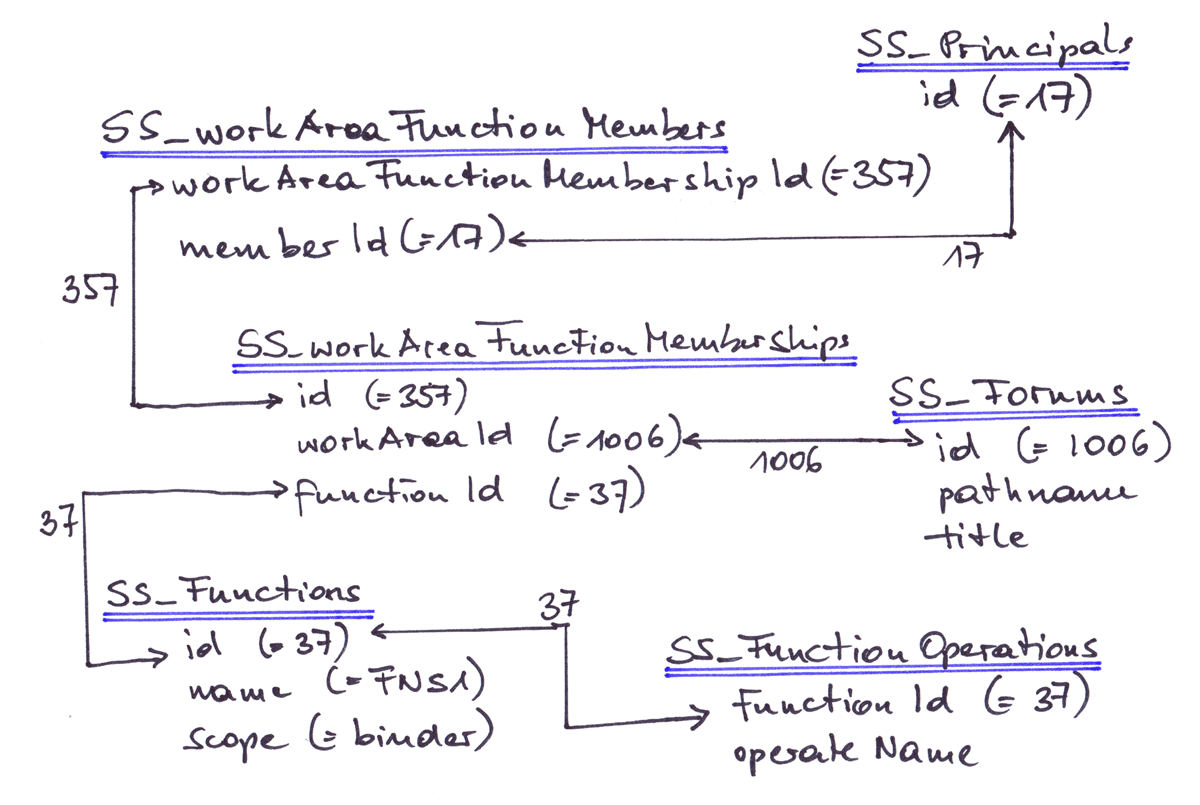 SS_Principals
id (=17)
SS_workAreaFunctionMembers
workAreaFunctionMembershipId (=357)
memberId (=17)
17
357
SS_workAreaFunctionMemberships
id (=357)
workAreaId (=1006)
functionId (=37)
1006
SS_Forums
id (=1006)
pathname
title
37
SS_Functions
id (=37)
name (=FNS1)
scope (=binder)
37
SS_FunctionOperations
FunctionId (=37)
operateName